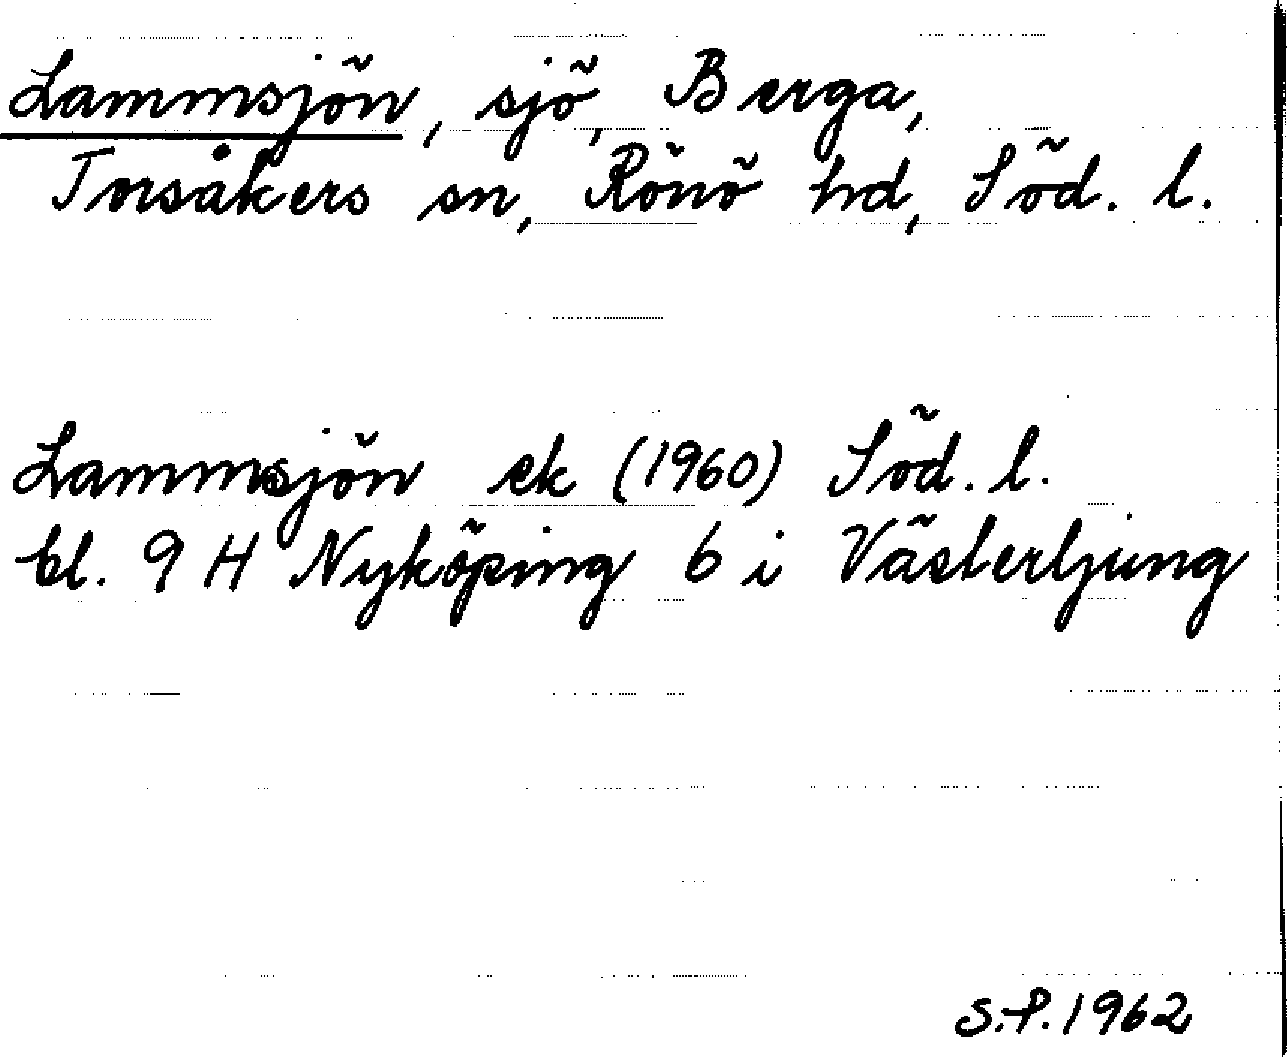 Lammsjön, sjö, Berga,
Torsåkers sn, Rönö hd, Söd. l.
Lammsjön ek (1960) Söd. l.
bl. 9 H Nyköping 6 i Västerljung
S.P. 1962